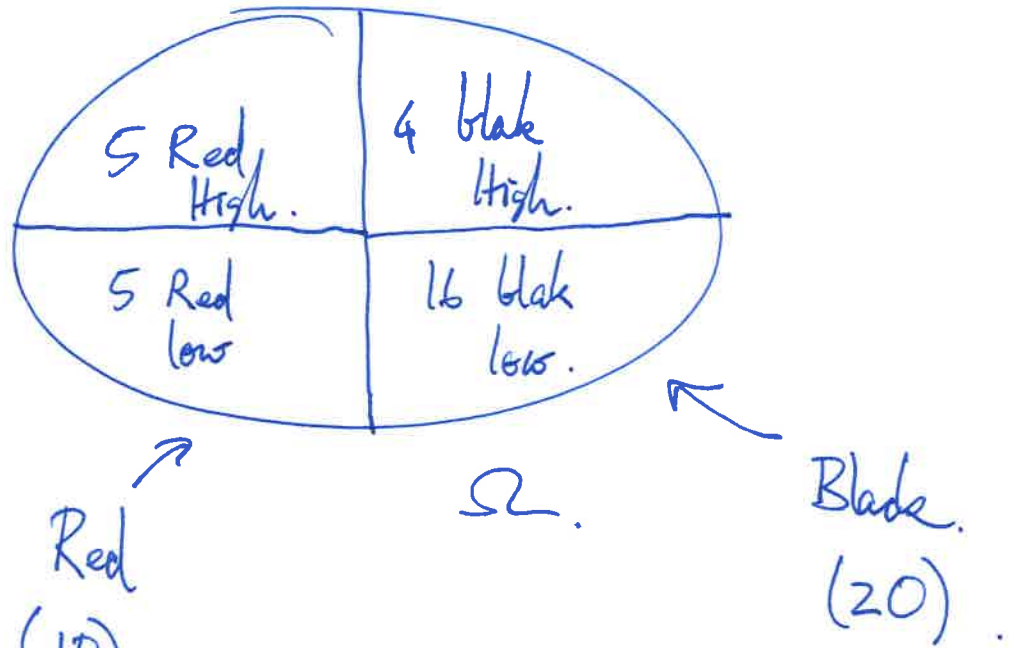 5 Red
High.
4 blak
High.
5 Red
low
16 blak
low.
Ω.
Red
(10)
Black.
(20).